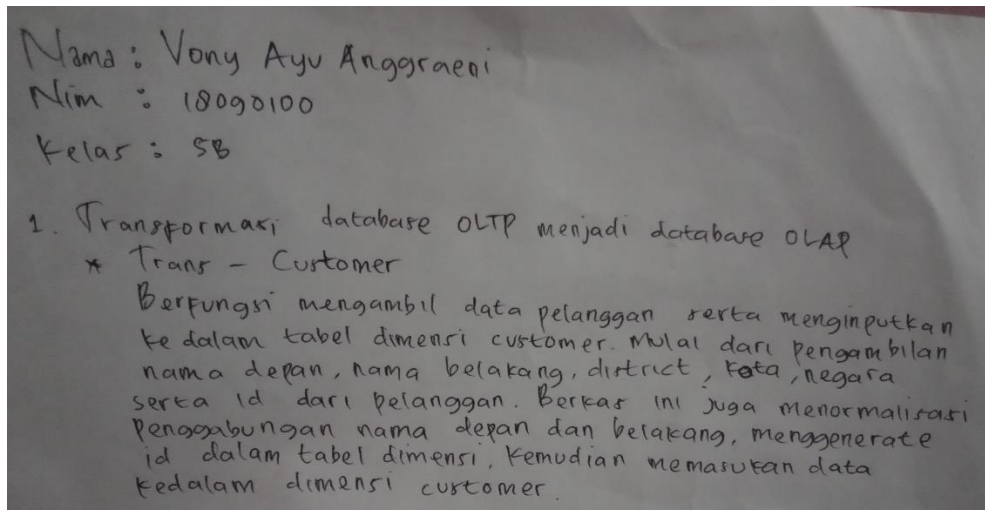 Nama : Vony Ayu Anggraeni
Nim : 18090100
Kelas : 5B
1. Transformasi database OLTP menjadi database OLAP
* Trans - Customer
Berfungsi mengambil data pelanggan serta menginputkan
ke dalam tabel dimensi customer. Mulai dari pengambilan
nama depan, nama belakang, district, kota, negara
serta id dari pelanggan. Berkas ini juga menormalisasi
penggabungan nama depan dan belakang, menggenerate
id dalam tabel dimensi, kemudian memasukan data
kedalam dimensi customer.